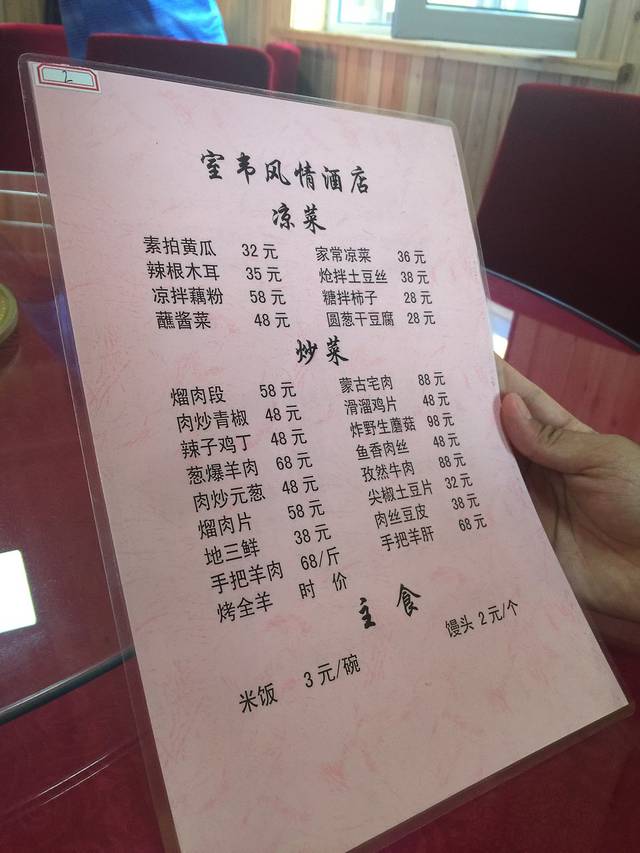 2
室韦风情酒店
凉菜
素拍黄瓜 32元 家常凉菜 36元
辣根木耳 35元 炝拌土豆丝 38元
凉拌藕粉 58元 糖拌柿子 28元
蘸酱菜 48元 圆葱干豆腐 28元
炒菜
熘肉段 58元 蒙古宅肉 88元
肉炒青椒 48元 滑溜鸡片 48元
辣子鸡丁 48元 炸野生蘑菇 98元
葱爆羊肉 68元 鱼香肉丝 48元
肉炒元葱 48元 孜然牛肉 88元
熘肉片 58元 尖椒土豆片 32元
地三鲜 38元 肉丝豆皮 38元
手把羊肉 68/斤 手把羊肝 68元
烤全羊 时价
主食
米饭 3元/碗 馒头 2元/个